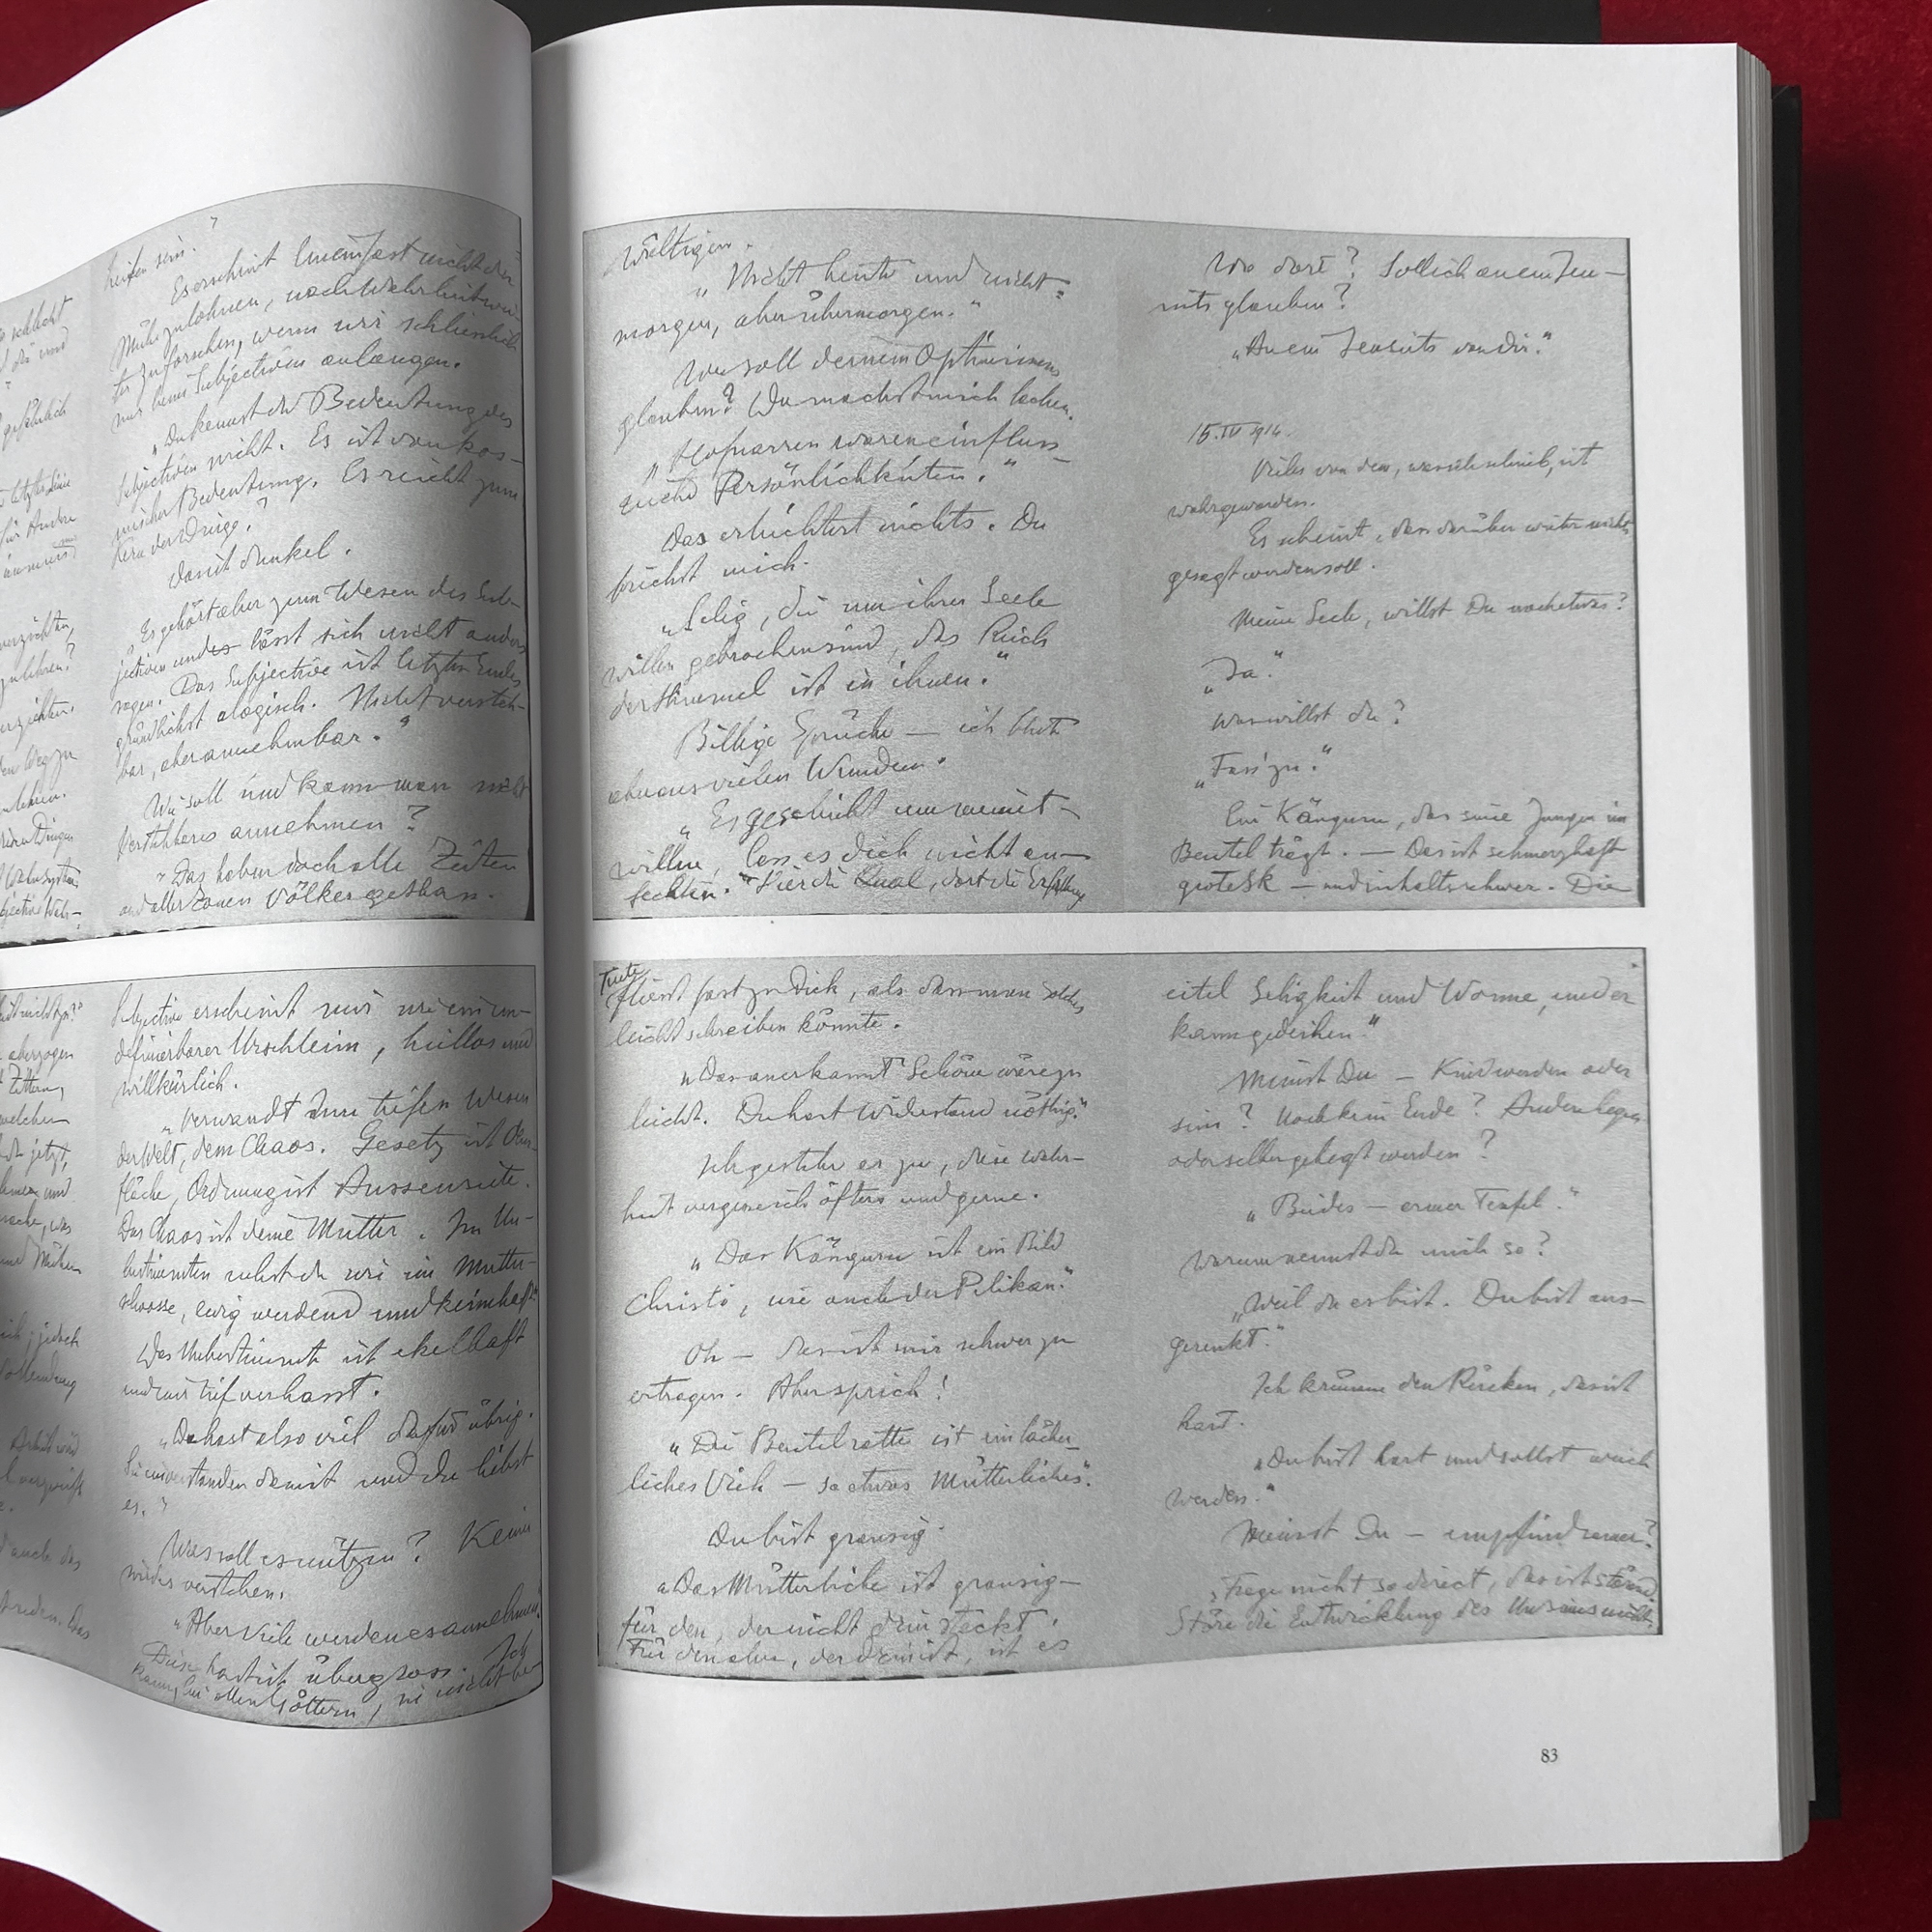 heissen sein."
Es erscheint Einem fast nicht der
Mühe zu lohnen, nach Wahrheit wei-
ter zu forschen, wenn wir schliesslich
nur beim Subjectiven anlangen.
„Du kennst die Bedeutung des
Subjectiven nicht. Es ist von kos-
mischer Bedeutung. Es reicht zum
Kern der Dinge."
Das ist dunkel.
„Es gehört aber zum Wesen des Sub-
jectiven und es lässt sich nicht anders
sagen. Das Subjective ist letzten Endes
gründlichst alogisch. Nicht versteh-
bar, aber annehmbar."
Wie soll und kann man nicht
Verstehbares annehmen?
„Das haben doch alle Zeiten
und aller Zonen Völker gethan.
Subjective erscheint mir wie ein un-
definirbarer Urschleim, heillos und
willkürlich.
„Verwandt dem tiefen Wesen
der Welt, dem Chaos. Gesetz ist Ober-
fläche, Ordnung ist Aussenseite.
Das Chaos ist deine Mutter. Im Un-
bestimmten ruhst du wie im Mutter-
schoosse, ewig werdend und keimhaft."
Das Unbestimmte ist ekelhaft
und mir tief verhasst.
„Du hast also viel dafür übrig.
Sei einverstanden damit und du liebst
es."
Was soll es nützen? Keiner
wird es verstehen.
„Aber Viele werden es annehmen."
Diese Last ist übergross. Ich
kann, bei allen Göttern, sie nicht be-
wältigen.
„Nicht heute und nicht
morgen, aber übermorgen."
Wer soll deinem Optimismus
glauben? Du machst mich lachen.
„Hofnarren waren einfluss-
reiche Persönlichkeiten."
Das erleichtert nichts. Du
brichst mich.
„Selig, die um ihrer Seele
willen gebrochen sind, das Reich
der Himmel ist in ihnen."
Billige Sprüche — ich blute
aber aus vielen Wunden.
„Es geschieht um meinet-
willen, lass es dich nicht an-
fechten." Hier die Qual, dort die Erfüllung
Wo dort? Soll ich an ein Jen-
seits glauben?
„An ein Jenseits von dir."
15. IV 1914.
Vieles von dem, was ich schrieb, ist
wahr geworden.
Es scheint, dass darüber weiter nichts
gesagt werden soll.
Meine Seele, willst Du noch etwas?
„Ja."
Was willst du?
„Fass' zu."
Ein Känguru, das seine Jungen im
Beutel trägt. — Das ist schmerzhaft
grotesk — und inhaltsschwer. Die
Tinte
fliesst fast zu dick, als dass man solches
leicht schreiben könnte.
„Das anerkannt Schöne wäre zu
leicht. Du hast Widerstand nöthig."
Ich gestehe es zu, diese Wahr-
heit vergesse ich öfters und gerne.
„Das Känguru ist ein Bild
Christi, wie auch der Pelikan."
Oh — das ist mir schwer zu
ertragen. Aber sprich!
„Die Beutelratte ist ein lächer-
liches Vieh — so etwas Mütterliches".
Du bist grausig.
„Das Mütterliche ist grausig —
für den, der nicht drin steckt.
Für den aber, der drin ist, ist es
eitel Seligkeit und Wonne, und er
kann gedeihen."
Meinst Du — Kind werden oder
sein? Noch kein Ende? Andere hegen
oder selber gehegt werden?
„Beides — armer Teufel."
Warum nennst du mich so?
„Weil du es bist. Du bist aus-
gerenkt."
Ich krümme den Rücken, das ist
hart.
„Du bist hart und sollst weich
werden."
Meinst Du — empfindsamer?
„Frage nicht so direct, das ist störend.
Störe die Entwicklung des Unsinns nicht.
83